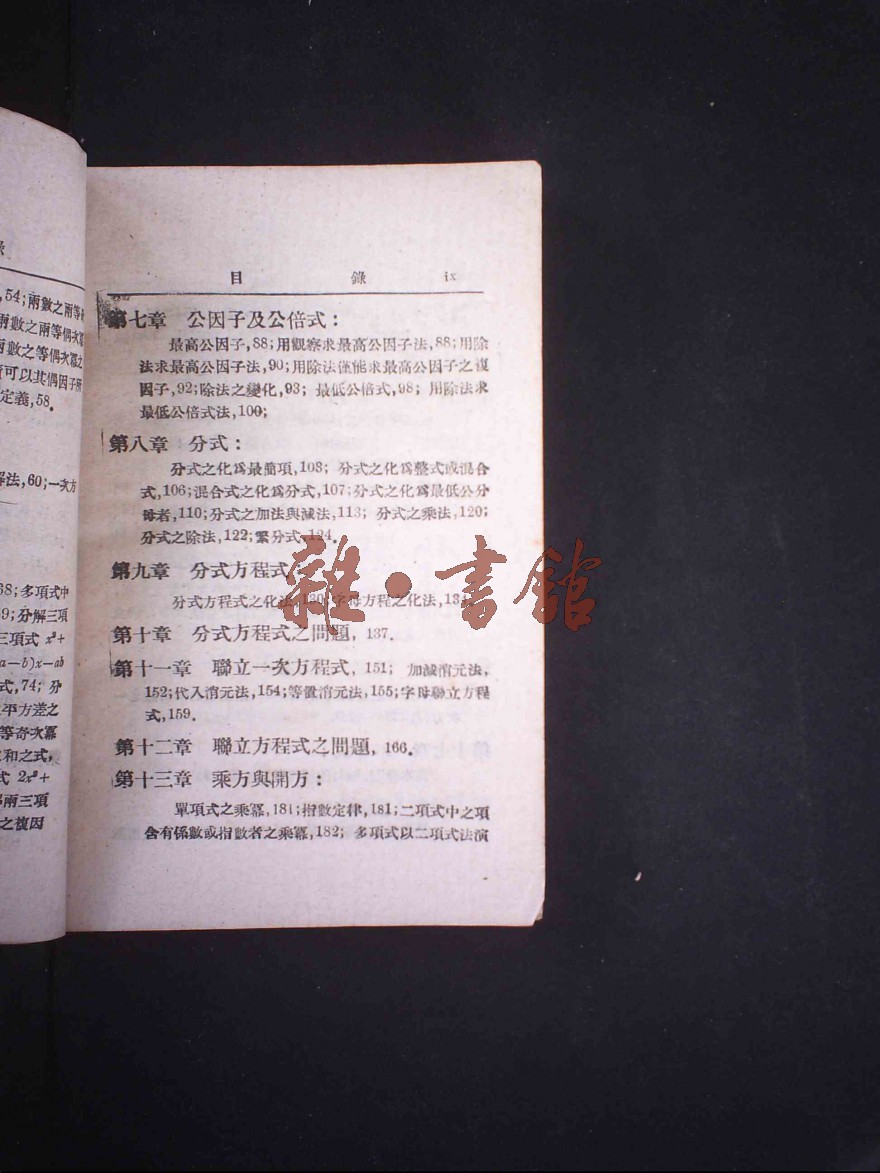 錄
,54;兩數之兩等
兩數之兩等偶次冪
兩數之等偶次冪之
可以其偶因子所
定義,58.
解法,60;一次方
68;多項式中
69;分解三項
三項式 x²+
a—b)x—ab
式,74; 分
平方差之
等奇次冪
求和之式,
式 2x²+
兩三項
之複因
目 錄 ix
第七章 公因子及公倍式:
最高公因子,88;用觀察求最高公因子法,88;用除
法求最高公因子法,90;用除法僅能求最高公因子之複
因子,92;除法之變化,93; 最低公倍式,98; 用除法求
最低公倍式法,100;
第八章 分式:
分式之化爲最簡項,103; 分式之化爲整式或混合
式,106;混合式之化爲分式,107;分式之化爲最低公分
母者,110;分式之加法與減法,113; 分式之乘法,120;
分式之除法,122;繁分式,124.
第九章 分式方程式
分式方程式之化法,130;字母方程之化法,134.
第十章 分式方程式之問題, 137.
第十一章 聯立一次方程式, 151; 加減消元法,
152;代入消元法,154;等置消元法,155;字母聯立方程
式,159.
第十二章 聯立方程式之問題, 166.
第十三章 乘方與開方:
單項式之乘冪,181;指數定律,181;二項式中之項
含有係數或指數者之乘冪,182; 多項式以二項式法演
雜·書館